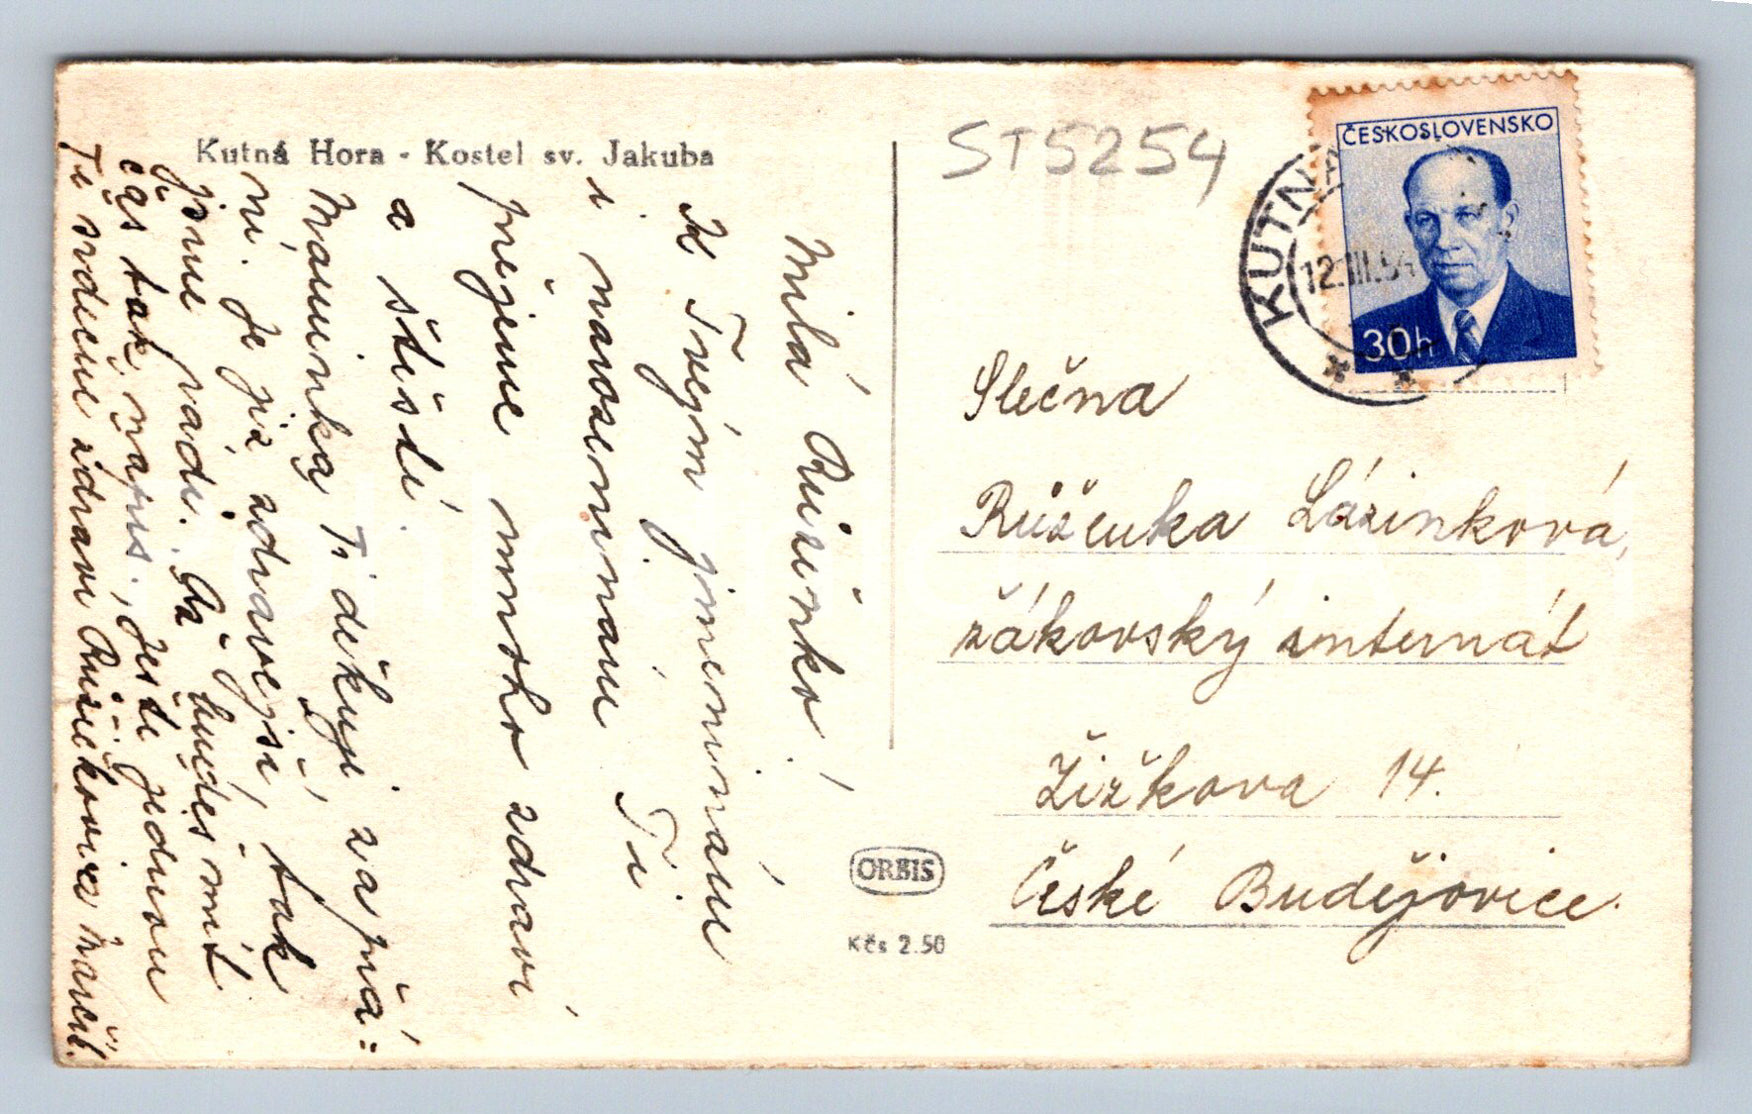 Kutná Hora - Kostel sv. Jakuba
ST5254
ČESKOSLOVENSKO
30h
KUTNÁ
12.III.54
Milá Růženko!
K Tvým jmeninám
i narozeninám Ti
přejeme mnoho zdraví
a štěstí.
Maminka Ti děkuje za přá=
ní. Je již zdravější, tak
jsme rádi. Až budeš mít
čas tak napiš. Ještě jednou
Tě srdečně zdraví Růžičkovi z
Slečna
Růženka Lázinková,
žákovský internát
Žižkova 14.
České Budějovice.
ORBIS
Kčs 2.50